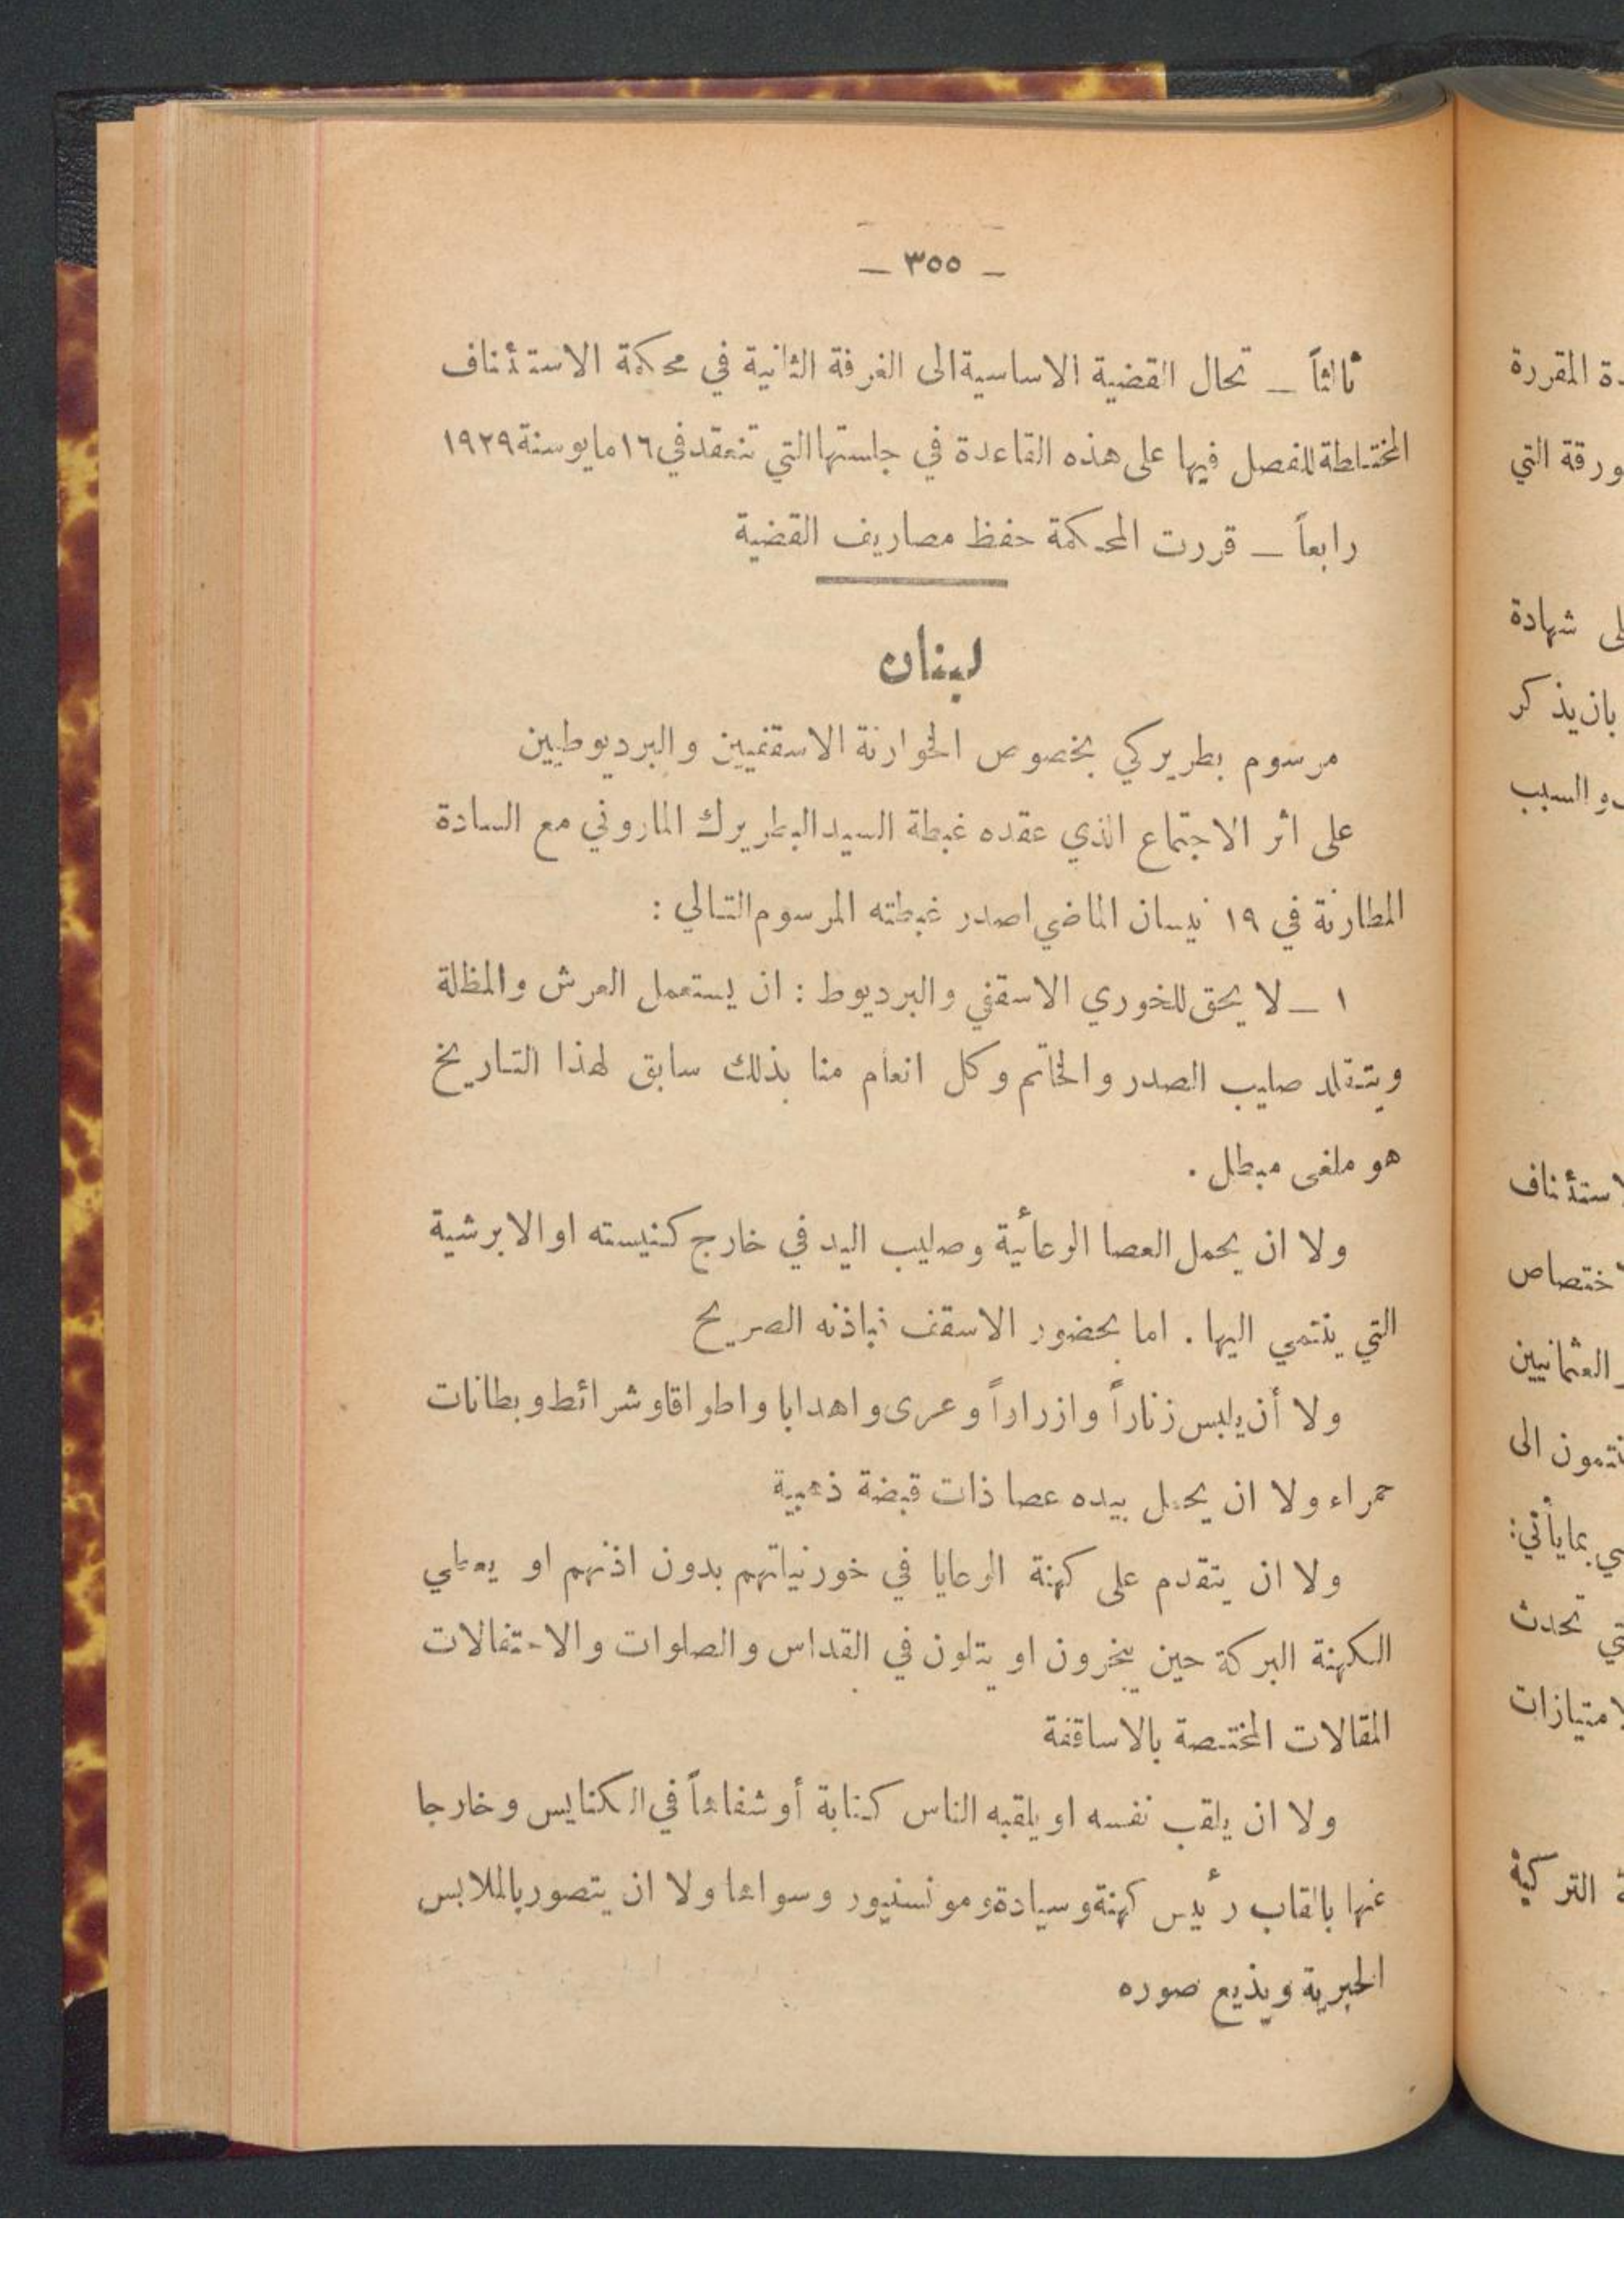 — ٣٥٥ —
ثالثاً — تحال القضية الاساسية الى الغرفة الثانية في محكمة الاستئناف
المختلطة للفصل فيها على هذه القاعدة في جلستها التي تنعقد في ١٦ مايو سنة ١٩٢٩
رابعاً — قررت المحكمة حفظ مصاريف القضية
لبنان
مرسوم بطريركي بخصوص الخوارنة الاسقفيين والبرديوطيين
على اثر الاجتماع الذي عقده غبطة السيد البطريرك الماروني مع السادة
المطارنة في ١٩ نيسان الماضي اصدر غبطته المرسوم التالي :
١ — لا يحق للخوري الاسقفي والبرديوط : ان يستعمل العرش والمظلة
ويتقلد صليب الصدر والخاتم وكل انعام منا بذلك سابق لهذا التاريخ
هو ملغى مبطل .
ولا ان يحمل العصا الوعائية وصليب اليد في خارج كنيسته او الابرشية
التي ينتمي اليها . اما بحضور الاسقف فباذنه الصريح
ولا أن يلبس زناراً وازراراً وعرى واهدابا واطواقا وشرائط وبطانات
حمراء ولا ان يحمل بيده عصا ذات قبضة ذهبية
ولا ان يتقدم على كهنة الوعايا في خورنياتهم بدون اذنهم او يعطي
الكهنة البركة حين يبخرون او يتلون في القداس والصلوات والاحتفالات
المقالات المختصة بالاساقفة
ولا ان يلقب نفسه او يلقبه الناس كتابة أو شفاهاً في الكنايس وخارجا
عنها بالقاب رئيس كهنة وسيادة ومونسنيور وسواها ولا ان يتصور بالملابس
الحبرية ويذيع صوره
دة المقررة
ورقة التي
لى شهادة
بان يذكر
والسبب
لاستئناف
ختصاص
العثمانيين
نتمون الى
بما يأتي:
تي تحدث
لامتيازات
التركية